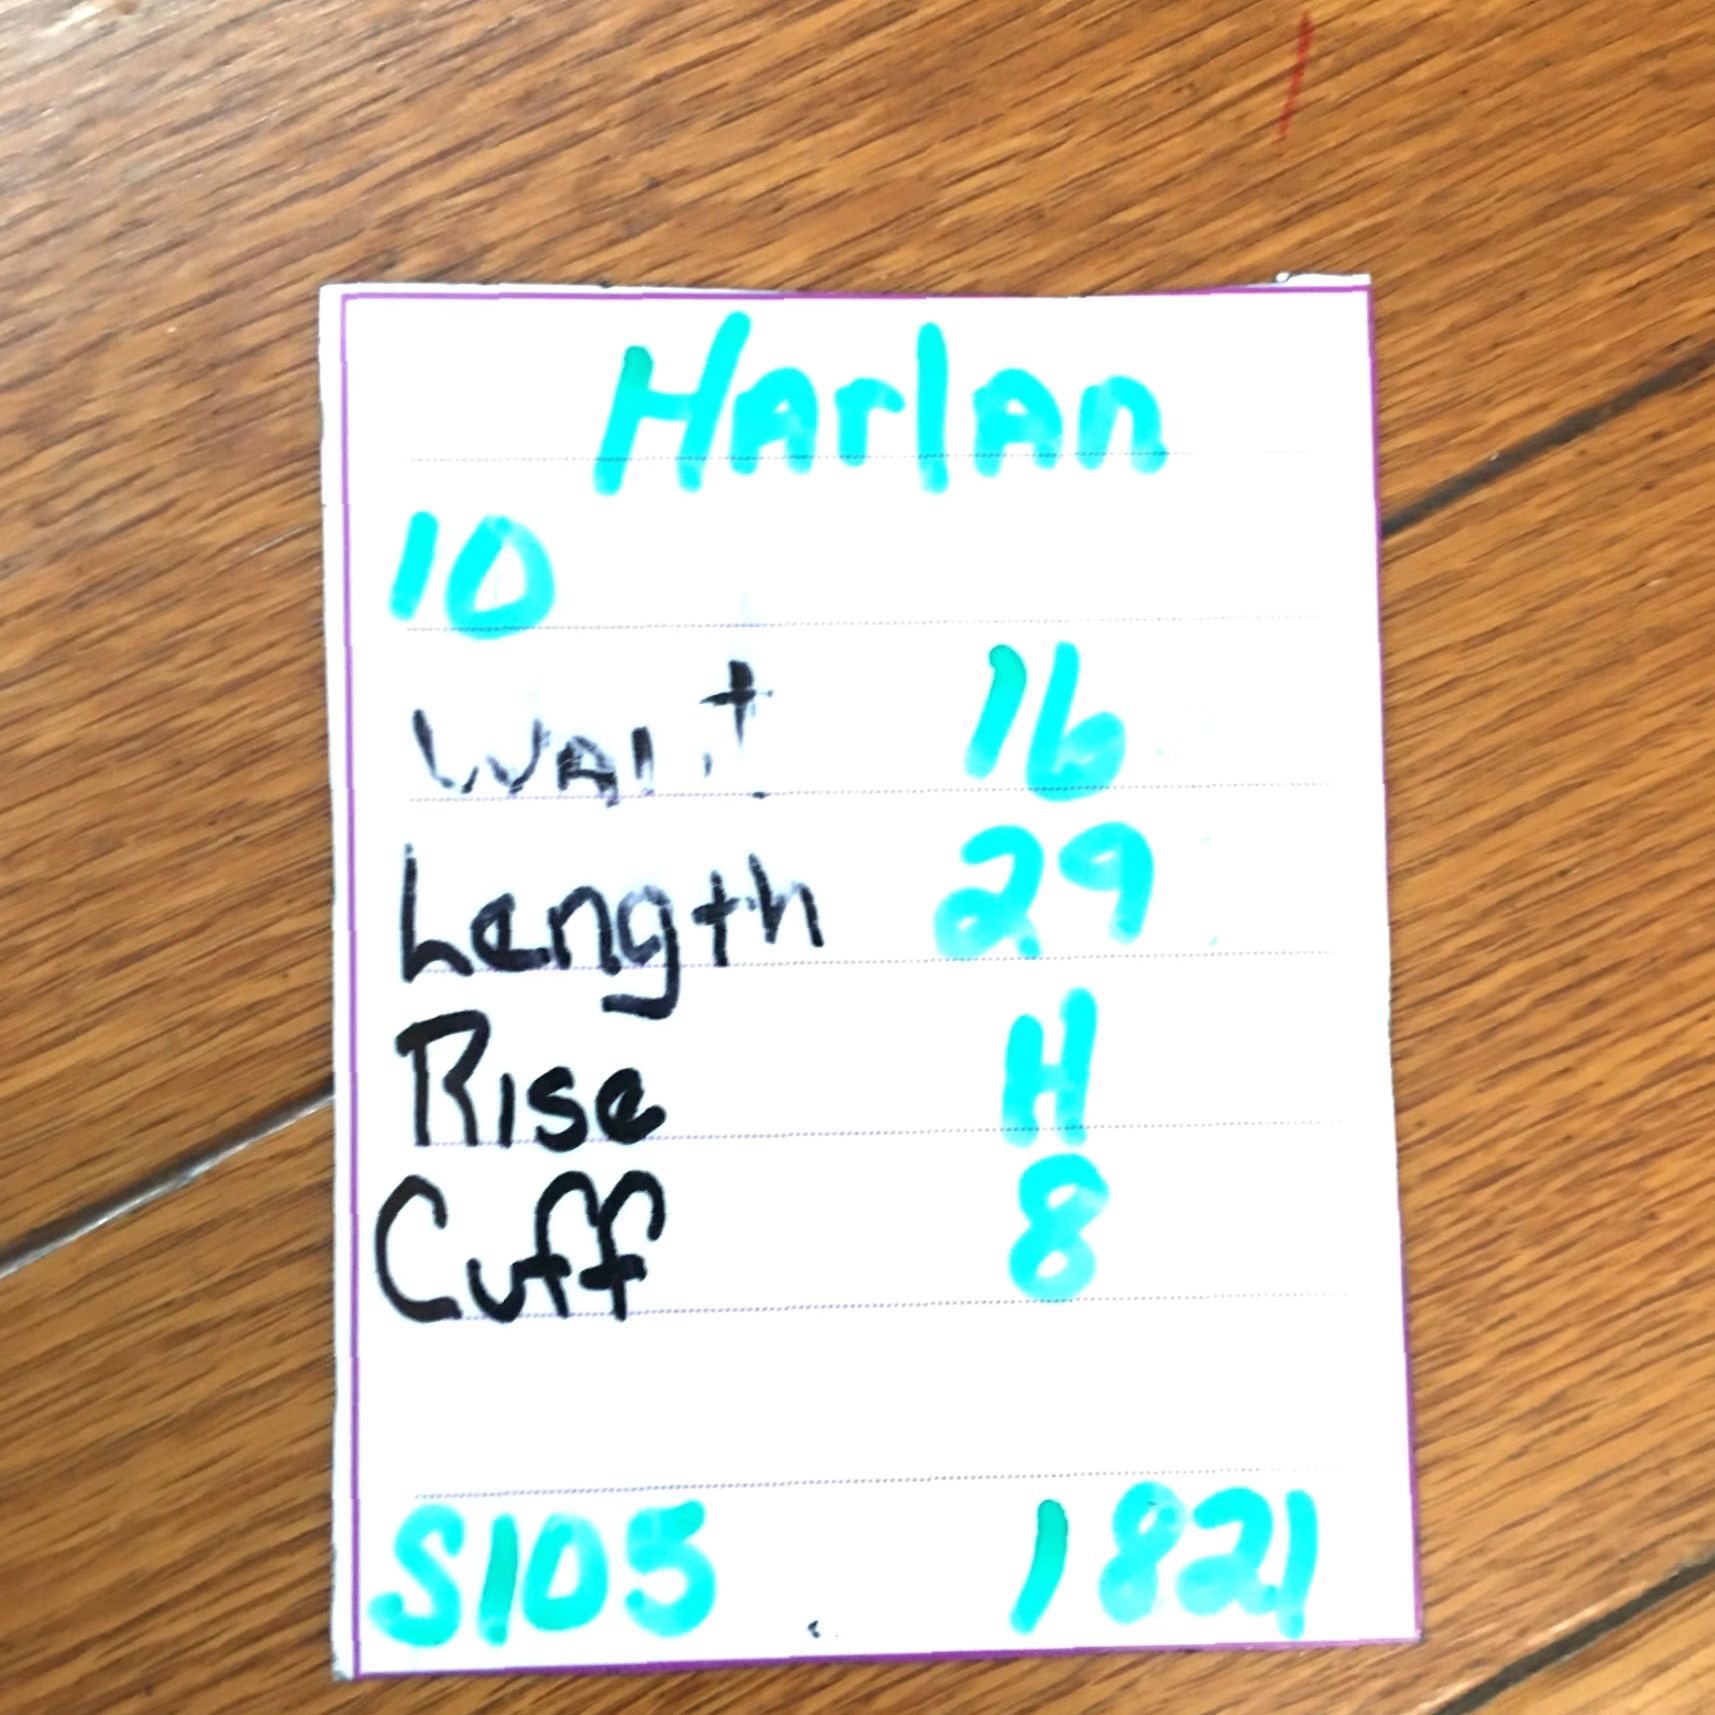 Harlan
10
Waist 16
Length 29
Rise H
Cuff 8
S105 1821